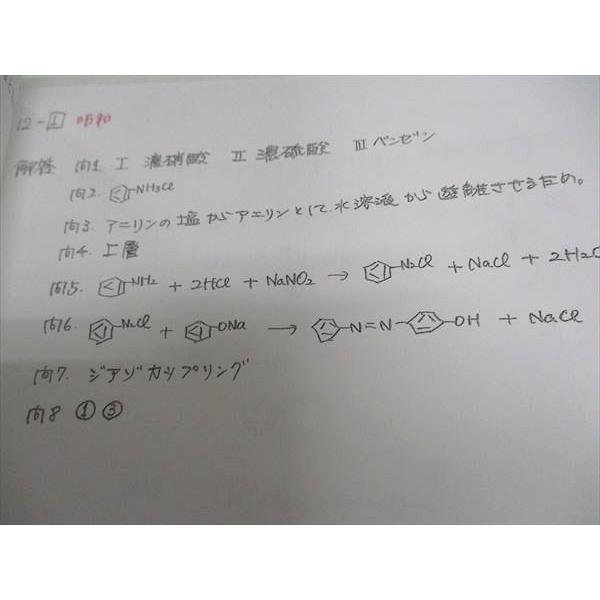 12-1 昭和
解答 問1 I 濃硝酸 II 濃硫酸 III ベンゼン
問2. NH3Cl
問3. アニリンの塩からアニリンとして、水溶液から遊離させるため。
問4. 上層
問5. NH2 + 2HCl + NaNO2 → N2Cl + NaCl + 2H2O
問6. N2Cl + ONa → N=N OH + NaCl
問7. ジアゾカップリング
問8 ① ③